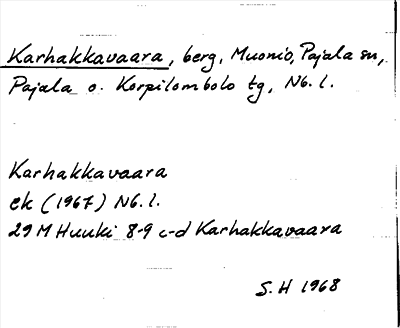 Karhakkavaara, berg, Muonio, Pajala sn,
Pajala o. Korpilombolo tg, Nb. l.
Karhakkavaara
ek (1967) Nb. l.
29 M Huuki 8-9 c-d Karhakkavaara
S. H 1968